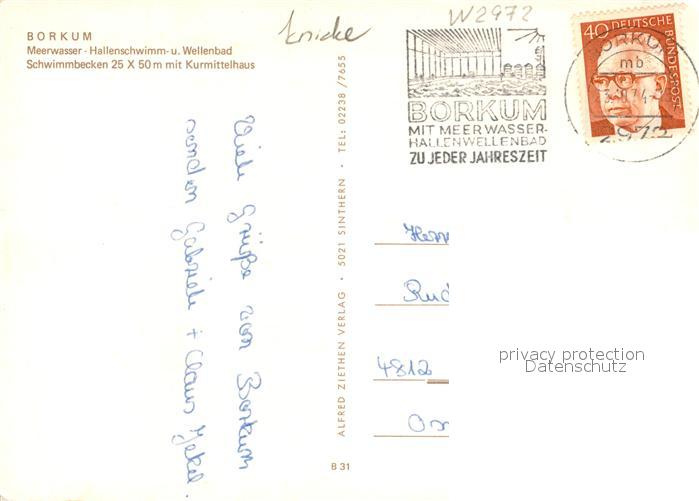 BORKUM
Meerwasser - Hallenschwimm- u. Wellenbad
Schwimmbecken 25 X 50 m mit Kurmittelhaus
Knicke
W2972
BORKUM
MIT MEERWASSER-
HALLENWELLENBAD
ZU JEDER JAHRESZEIT
40 DEUTSCHE BUNDESPOST
BORKUM
mb
2972
Viele Grüße von Borkum
senden Gabriele + Claus
ALFRED ZIETHEN VERLAG · 5021 SINTHERN · TEL: 02238/7655
Herrn
Rud
4812
privacy protection
Datenschutz
B 31